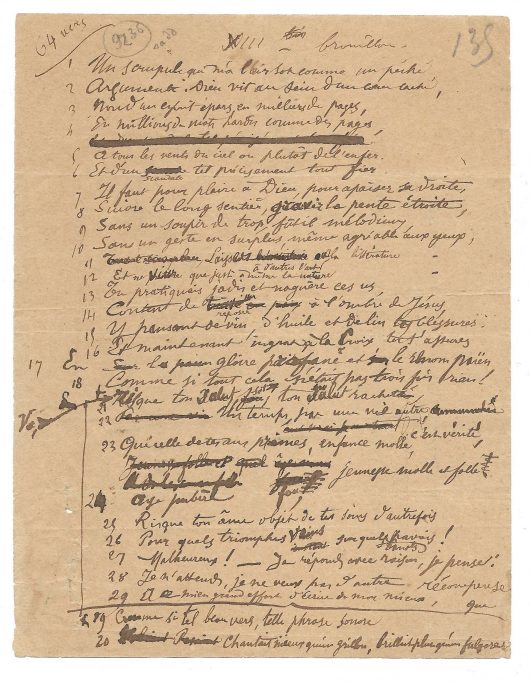 64 vers
9236
XIII bis brouillon
135
1 Un scrupule qui m'a l'air sot comme un péché
2 Argumente. Dieu vit au sein d'un cœur caché,
3 Non d'un esprit épars en milliers de pages,
4 En millions de mots hardis comme des pages
5 A tous les vents du ciel ou plutôt de l'enfer.
6 Et d'un scandale tel précisément tout fier.
7 Il faut pour plaire à Dieu, pour apaiser sa droite,
8 Suivre le long sentier, gravir la pente étroite,
9 Sans un soupir de trop, fût-il mélodieux,
10 Sans un geste en surplus, même agréable aux yeux,
11 Laisser à d'autres l'art la littérature
12 Et ne vivre que juste à même la nature
13 Tu pratiquais jadis et naguère ces us,
14 Content de reposer à l'ombre de Jésus
15 Y pansant de vin, d'huile et de lin tes blessures.
16 Et maintenant, ingrat à la Croix tu t'assures
17 En la gloire profane et le renom païen
18 Comme si tout cela n'était pas trois fois rien!
21 Risque ton salut
22 Un temps, par une
23 Qu'elle de tes ans premiers, enfance molle, c'est vérité,
jeunesse molle et folle
24 Age pubère
25 Risque ton âme objet de tes soins d'autrefois
26 Pour quels triomphes vains sur quels pavois!
27 Malheureux! — Je réponds avec raison, je pense:
28 Je n'attends, je ne veux pas d'autre récompense
29 A ce mien grand effort d'écrire de mon mieux, que
19 Comme si tel beau vers, telle phrase sonore
20 Chantait mieux qu'un grillon, brillait plus qu'un fulgore